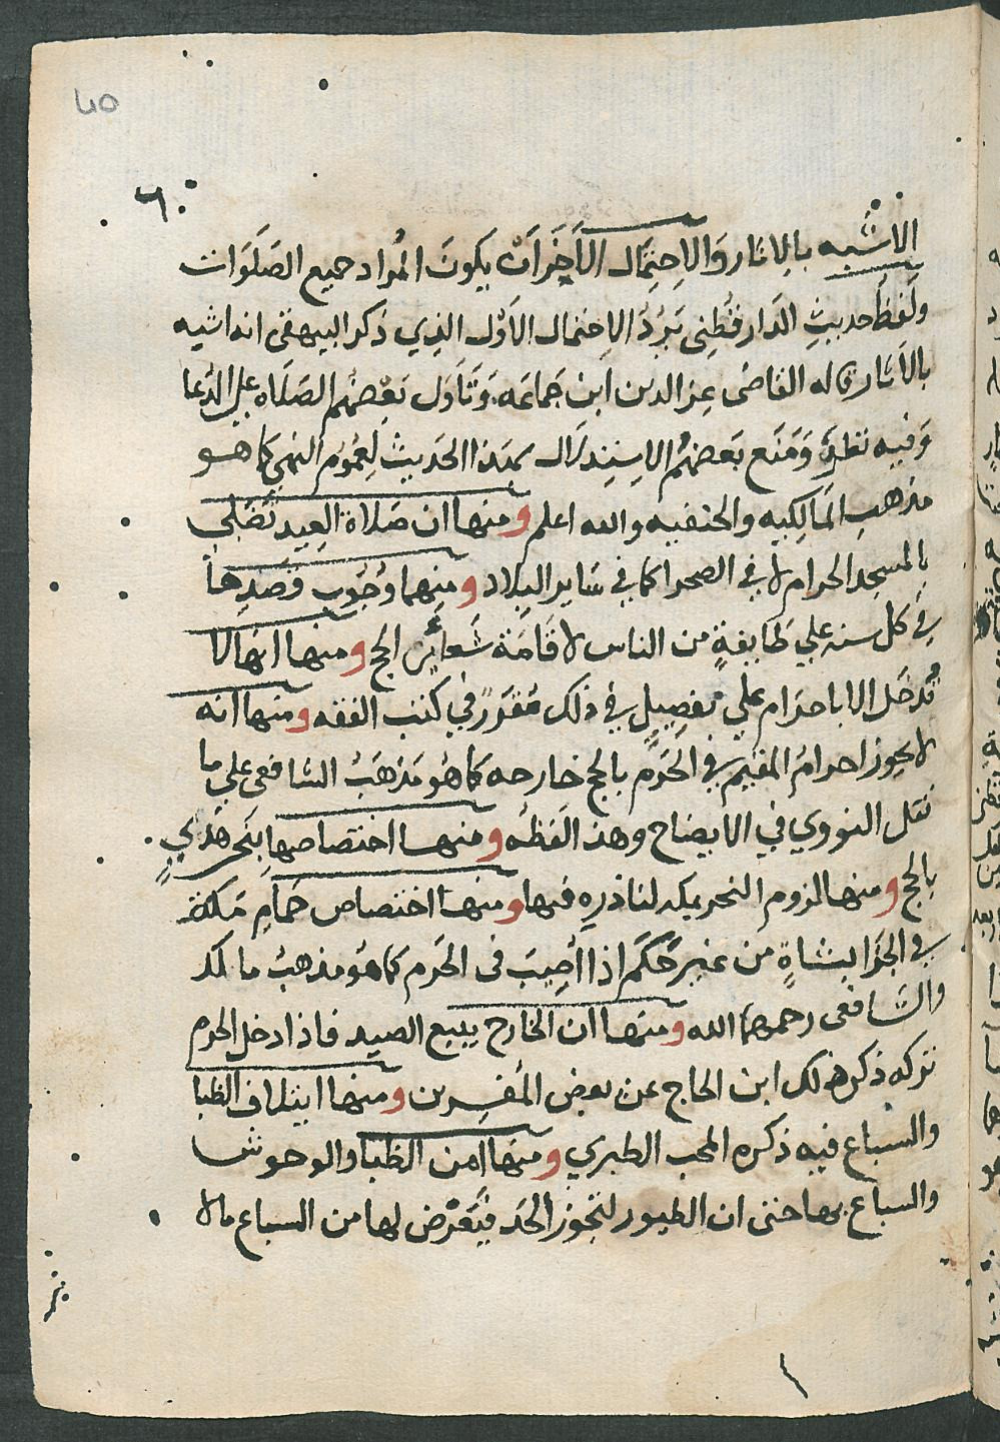 ٦٠
الاشبه بالاثار والاحتمال الاخر ان يكون المراد جميع الصلوات
ولفظ حديث الدارقطنى يرد الاحتمال الاول الذي ذكر البيهقى انه اشبه
بالاثار قاله القاضى عز الدين ابن جماعه وتاول بعضهم الصلاه على الدعا
وفيه نظر ومنع بعضهم الاستدلال بهذا الحديث لعموم النهي كما هو
مذهب المالكيه والحنفيه والله اعلم ومنها ان صلاة العيد تصلى
بالمسجد الحرام لا في الصحرا كما في ساير البلاد ومنها وجوب قصدها
في كل سنه علي طايفة من الناس لاقامة شعائر الحج ومنها انها لا
تدخل الا باحرام علي تفصيل في ذلك مقرر في كتب الفقه ومنها انه
لا يجوز احرام المقيم في الحرم بالحج خارجه كما هو مذهب الشافعى علي ما
نقل النووي في الايضاح وهذا لفظه ومنها اختصاصها بنحر هدي
بالحج ومنها لزوم النحر بمكه لناذره فيها ومنها اختصاص حمام مكة
في الجزا بشاة من غير حكم اذا اصيب فى الحرم كما هو مذهب مالك
والشافعى رحمهما الله ومنها ان الخارج يتبع الصيد فاذا دخل الحرم
تركه ذكر ذلك ابن الحاج عن بعض المفسرين ومنها ايتلاف الظبا
والسباع فيه ذكره المحب الطبري ومنها امن الظبا والوحوش
والسباع بها حتى ان الطيور لتجوز الحد فيتعرض لها من السباع مالا